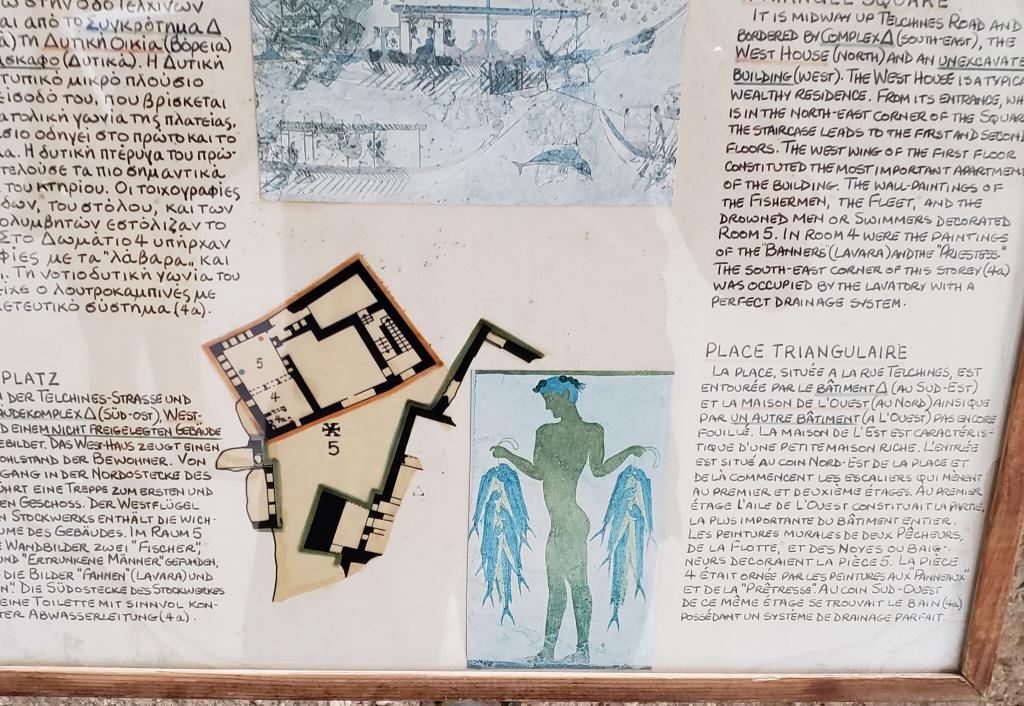 αι από το Συγκρότημα Δ
τη Δυτική Οικία (βόρεια)
(Δυτικά). Η Δυτική
τυπικό μικρό πλούσιο
είσοδό του, που βρίσκεται
γωνία της πλατείας,
οδηγεί στο πρώτο και το
Η δυτική πτέρυγα του πρώ-
τα πιο σημαντικά
του κτηρίου. Οι τοιχογραφίες
του στόλου, και των
εστόλιζαν το
Στο Δωμάτιο 4 υπήρχαν
με τα "λάβαρα", και
Τη νοτιοδυτική γωνία του
ο λουτροκαμπινές με
σύστημα (4α).
PLATZ
DER TELCHINES-STRASSE UND
Δ (SÜD-OST), WEST-
EINEM NICHT FREIGELEGTEN GEBÄUDE
DAS WESTHAUS ZEUGT EINEN
DER BEWOHNER. VON
IN DER NORDOSTECKE DES
EINE TREPPE ZUM ERSTEN UND
GESCHOSS. DER WESTFLÜGEL
STOCKWERKS ENTHÄLT DIE WICH-
DES GEBÄUDES. IM RAUM 5
WANDBILDER ZWEI "FISCHER",
"ERTRUNKENE MÄNNER" GEFUNDEN,
DIE BILDER "FAHNEN" (LAVARA) UND
DIE SÜDOSTECKE DES STOCKWERKES
EINE TOILETTE MIT SINNVOL KON-
ABWASSERLEITUNG (4a).
5
4
4a
5
TRIANGLE SQUARE
IT IS MIDWAY UP TELCHINES ROAD AND
BORDERED BY COMPLEX Δ (SOUTH-EAST), THE
WEST HOUSE (NORTH) AND AN UNEXCAVATE
BUILDING (WEST). THE WEST HOUSE IS A TYPICA
WEALTHY RESIDENCE. FROM ITS ENTRANCE, WH
IS IN THE NORTH-EAST CORNER OF THE SQUAR
THE STAIRCASE LEADS TO THE FIRST AND SECON
FLOORS. THE WEST WING OF THE FIRST FLOOR
CONSTITUTED THE MOST IMPORTANT APARTMEN
OF THE BUILDING. THE WALL-PAINTINGS OF
THE FISHERMEN, THE FLEET, AND THE
DROWNED MEN OR SWIMMERS DECORATED
ROOM 5. IN ROOM 4 WERE THE PAINTINGS
OF THE "BANNERS" (LAVARA) AND THE "PRIESTESS"
THE SOUTH-EAST CORNER OF THIS STOREY (4a)
WAS OCCUPIED BY THE LAVATORY WITH A
PERFECT DRAINAGE SYSTEM.
PLACE TRIANGULAIRE
LA PLACE, SITUÉE A LA RUE TELCHINES, EST
ENTOURÉE PAR LE BÂTIMENT Δ (AU SUD-EST)
ET LA MAISON DE L'OUEST (AU NORD) AINSI QUE
PAR UN AUTRE BÂTIMENT (A L'OUEST) PAS ENCORE
FOUILLÉ. LA MAISON DE L'EST EST CARACTÉRIS-
TIQUE D'UNE PETITE MAISON RICHE. L'ENTRÉE
EST SITUÉ AU COIN NORD-EST DE LA PLACE ET
DE LÀ COMMENCENT LES ESCALIERS QUI MÈNENT
AU PREMIER ET DEUXIÈME ÉTAGES. AU PREMIER
ÉTAGE L'AILE DE L'OUEST CONSTITUAIT LA PARTIE
LA PLUS IMPORTANTE DU BÂTIMENT ENTIER.
LES PEINTURES MURALES DE DEUX PÊCHEURS,
DE LA FLOTTE, ET DES NOYES OU BAIG-
NEURS DECORAIENT LA PIÈCE 5. LA PIÈCE
4 ÉTAIT ORNÉE PAR LES PEINTURES AUX "PANNEAUX"
ET DE LA "PRÊTRESSE". AU COIN SUD-OUEST
DE CE MÊME ÉTAGE SE TROUVAIT LE BAIN (4a)
POSSÉDANT UN SYSTÈME DE DRAINAGE PARFAIT.